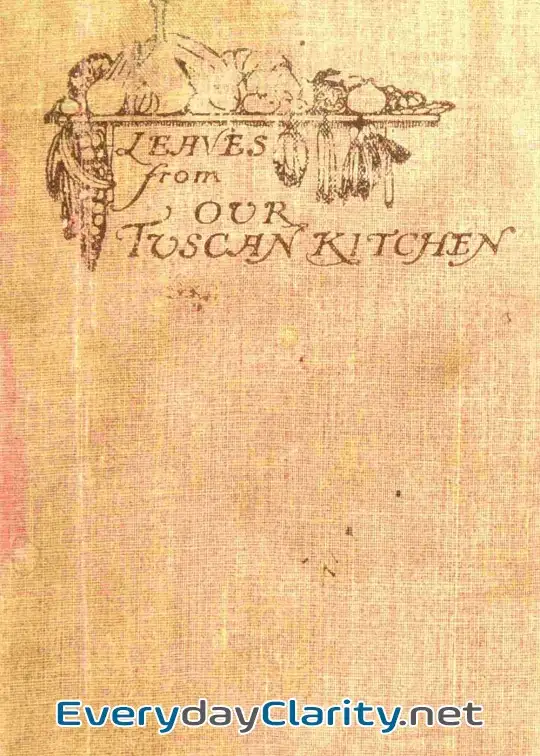 LEAVES
from
OUR
TUSCAN KITCHEN
EverydayClarity.net